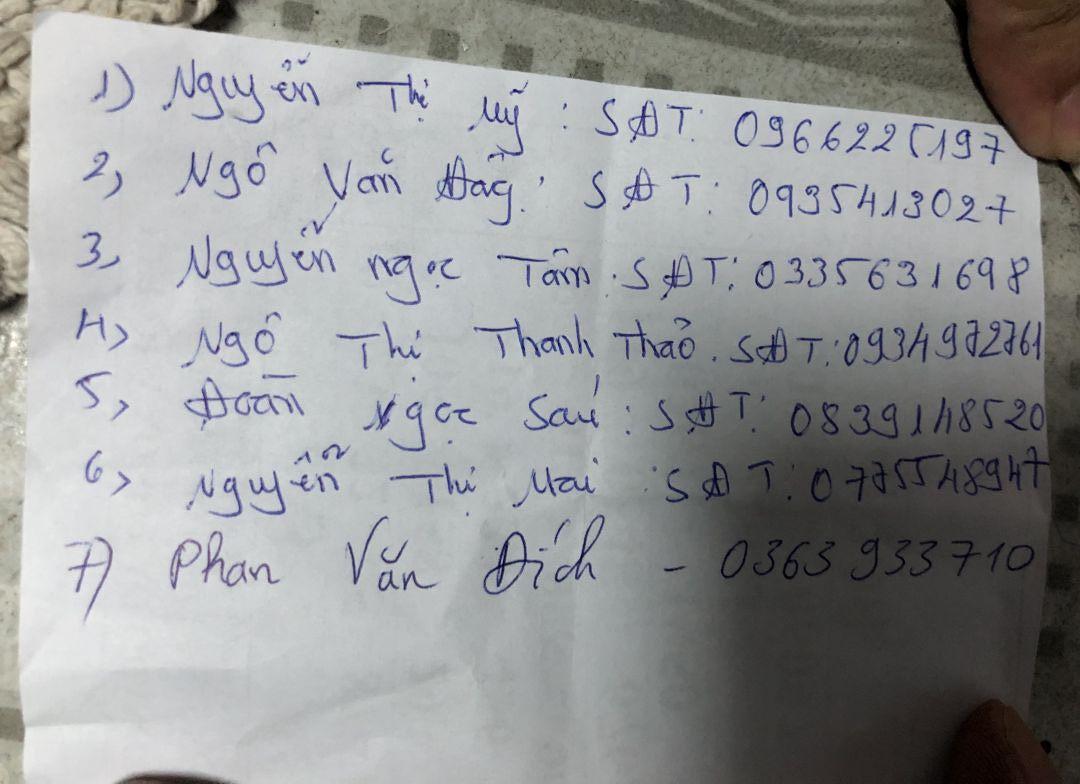 1) Nguyễn Thị Mỹ : SĐT: 0966225197
2, Ngô Văn : SĐT: 0935413027
3, Nguyễn ngọc Tâm : SĐT: 0335631698
4, Ngô Thị Thanh Thảo . SĐT: 0934972761
5, Đoàn Ngọc Sáu : SĐT: 0839148520
6, Nguyễn Thị Mai : SĐT: 0775548947
7) Phan Văn Đích - 0363 933 710